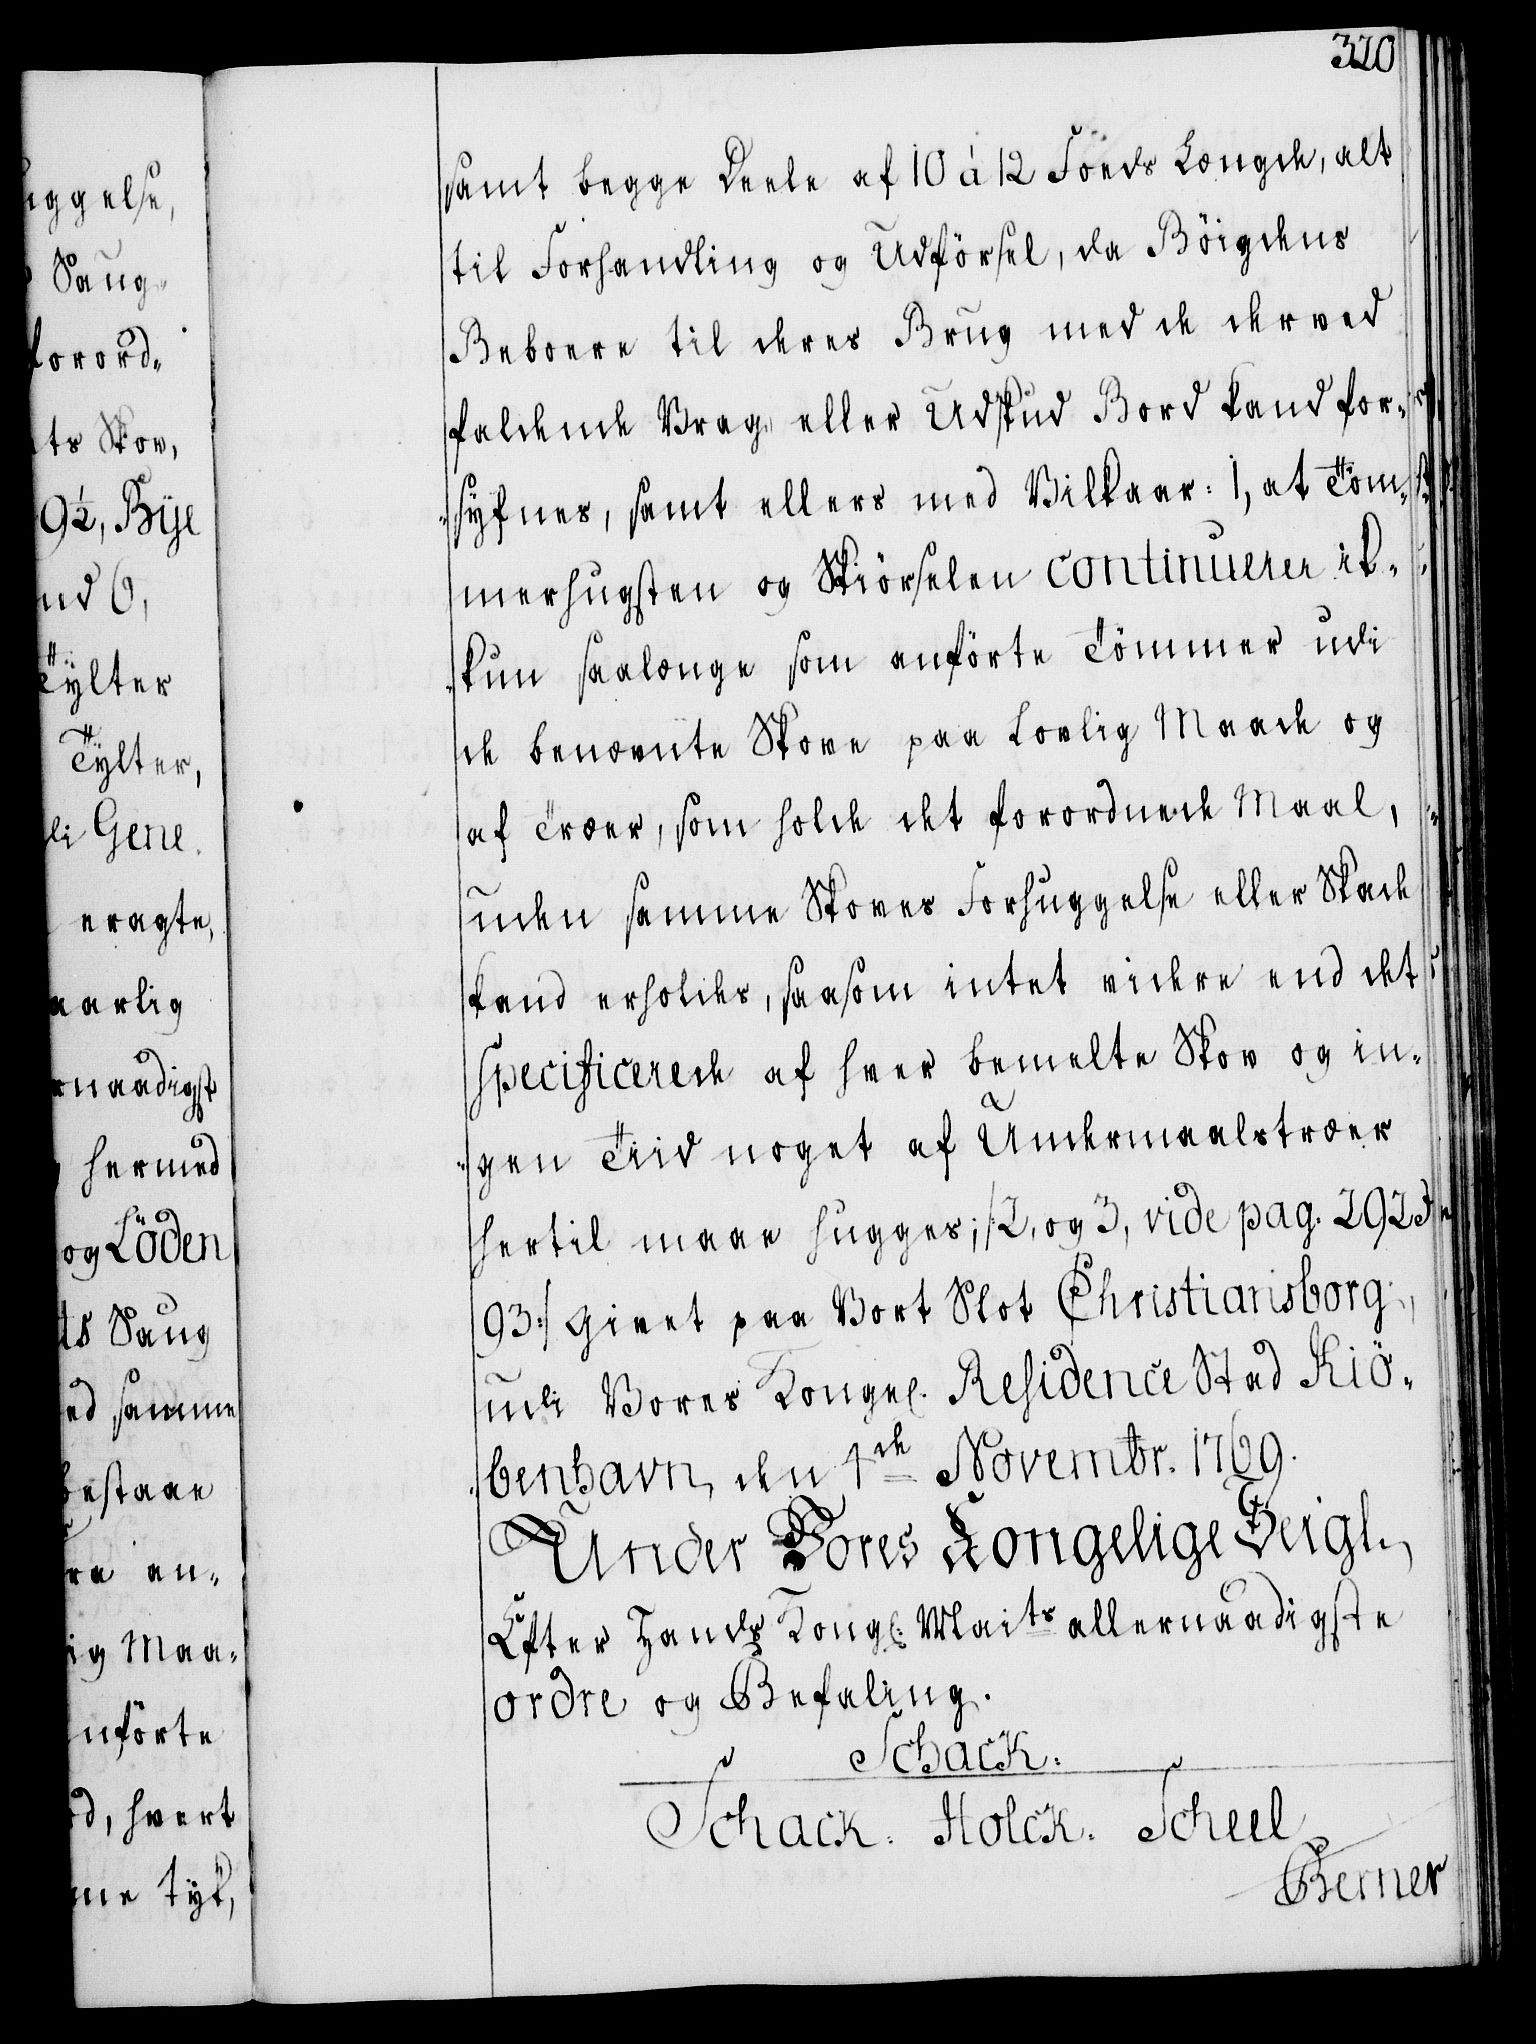 320
samt begge Deele af 10 à 12 Foeds Længde, alt
til Forhandling og Udförsel, da Böigdens
Beboere til deres Brug med de derved
faldende Vrag- eller Udskud Bord kand for-
syfnes, samt ellers med Vilkaar: 1, at Töm-
merhugsten og Skiörselen continuerer ik-
kun saalænge som anförte Tömmer udi
de benævnte Skove paa Lovlig Maade og
af Træer, som holde det forordnede Maal,
uden samme Skoves Forhuggelse eller Skade
kand erholdes, saasom intet videre end det
specificerede af hver bemelte Skov og in-
gen Tiid noget af Undermaalstræer
hertil maae hugges; /: 2, og 3, vide pag. 292 &
93:/ Givet paa Vort Slot Christiansborg,
udi Vores Kongel. Residence Stad Kiö-
benhavn, den 1de Novembr. 1769.
Under Vores Kongelige Zeigl.,
Efter Hands Kongl: Maits allernaadigste
ordre og Befaling.
Schack.
Schack. Holck. Scheel
Berner
uggelse,
Saug-
forord-
ts Skov,
9½, Bÿe
nd 6,
Tylter
Tylter,
di Gene
eragte,
aarlig
rnaadigst
hermed
og Löden
ts Saug
ed samme
bestaae
re an-
ig Maa-
nförte
d, hvert
me tyk,